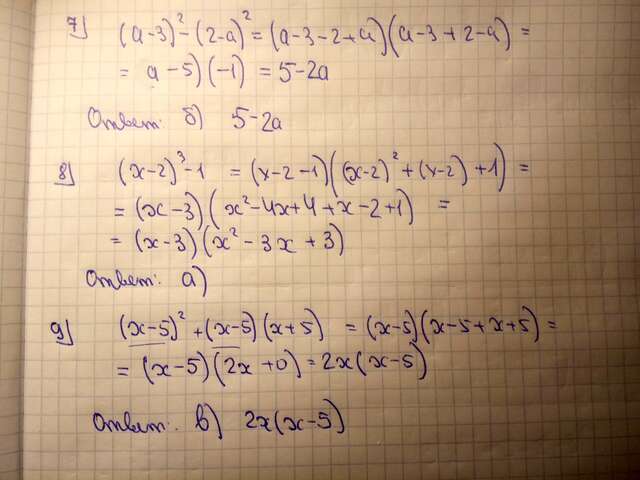 7) (a-3)² - (2-a)² = (a-3-2+a)(a-3+2-a) =
= a-5)(-1) = 5-2a
Ответ: б) 5-2a
8) (x-2)³-1 = (x-2-1)((x-2)²+(x-2)+1) =
= (x-3)(x²-4x+4+x-2+1) =
= (x-3)(x²-3x+3)
Ответ: а)
9) (x-5)²+(x-5)(x+5) = (x-5)(x-5+x+5) =
= (x-5)(2x+0) = 2x(x-5)
Ответ: в) 2x(x-5)